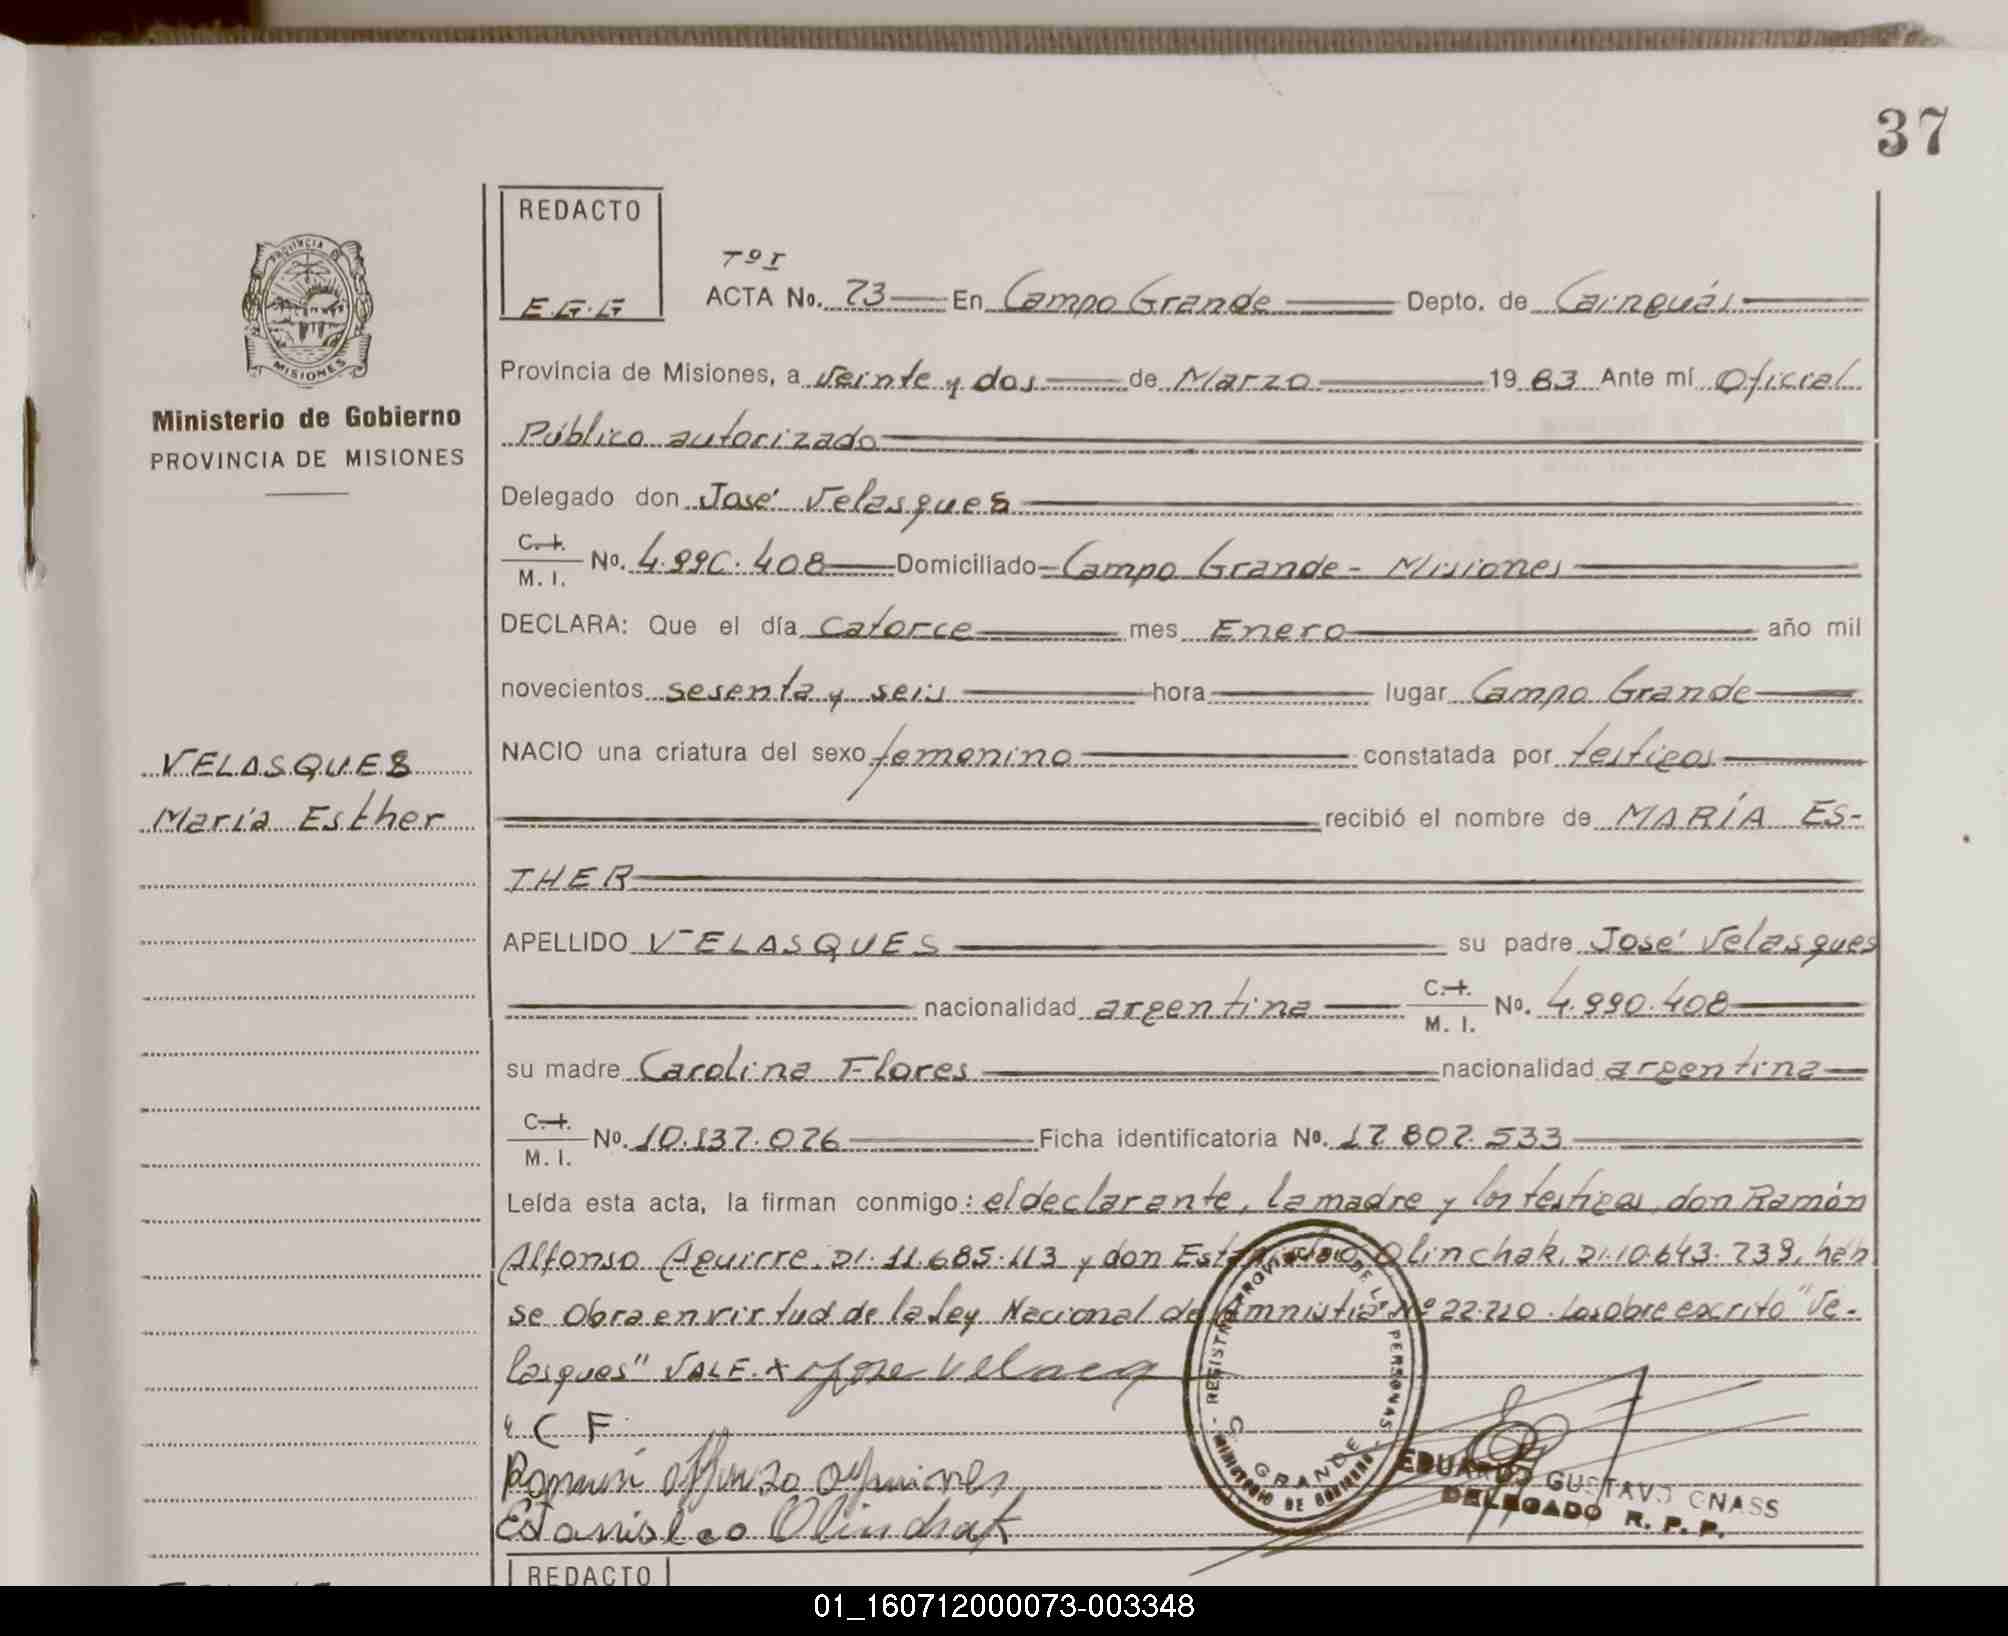 37
REDACTO
E.G.G
Tº I
ACTA No. 73 En Campo Grande Depto. de Cainguás
PROVINCIA DE MISIONES
Ministerio de Gobierno
PROVINCIA DE MISIONES
Provincia de Misiones, a veinte y dos de Marzo 1983 Ante mí Oficial
Público autorizado
Delegado don José Velasques
C.I. M. I. No. 4.990.408 Domiciliado Campo Grande - Misiones
DECLARA: Que el día catorce mes Enero año mil
novecientos sesenta y seis hora lugar Campo Grande
VELASQUES
María Esther
NACIO una criatura del sexo femenino constatada por testigos
recibió el nombre de MARÍA ES-
THER
APELLIDO VELASQUES su padre José Velasques
nacionalidad argentina C.I. M. I. No. 4.990.408
su madre Carolina Flores nacionalidad argentina
C.I. M. I. No. 10.137.076 Ficha identificatoria No. 17.807.533
Leída esta acta, la firman conmigo: el declarante, la madre y los testigos, don Ramón
Alfonso Aguirre. DI. 11.685.113 y don Estanislao Olinchak, DI. 10.643.739, háb
se Obra en virtud de la Ley Nacional de Amnistía Nº 22.710. Lo sobre escrito "Ve-
lasques" VALE. x Jose Velasq
C F
Ramón
Estanisleo Olinchak
REGISTRO PROVINCIAL DE LAS PERSONAS
C. GRANDE
MINISTERIO DE GOBIERNO
EDUARDO GUSTAVO GNASS
DELEGADO R. P. P.
REDACTO
01_160712000073-003348